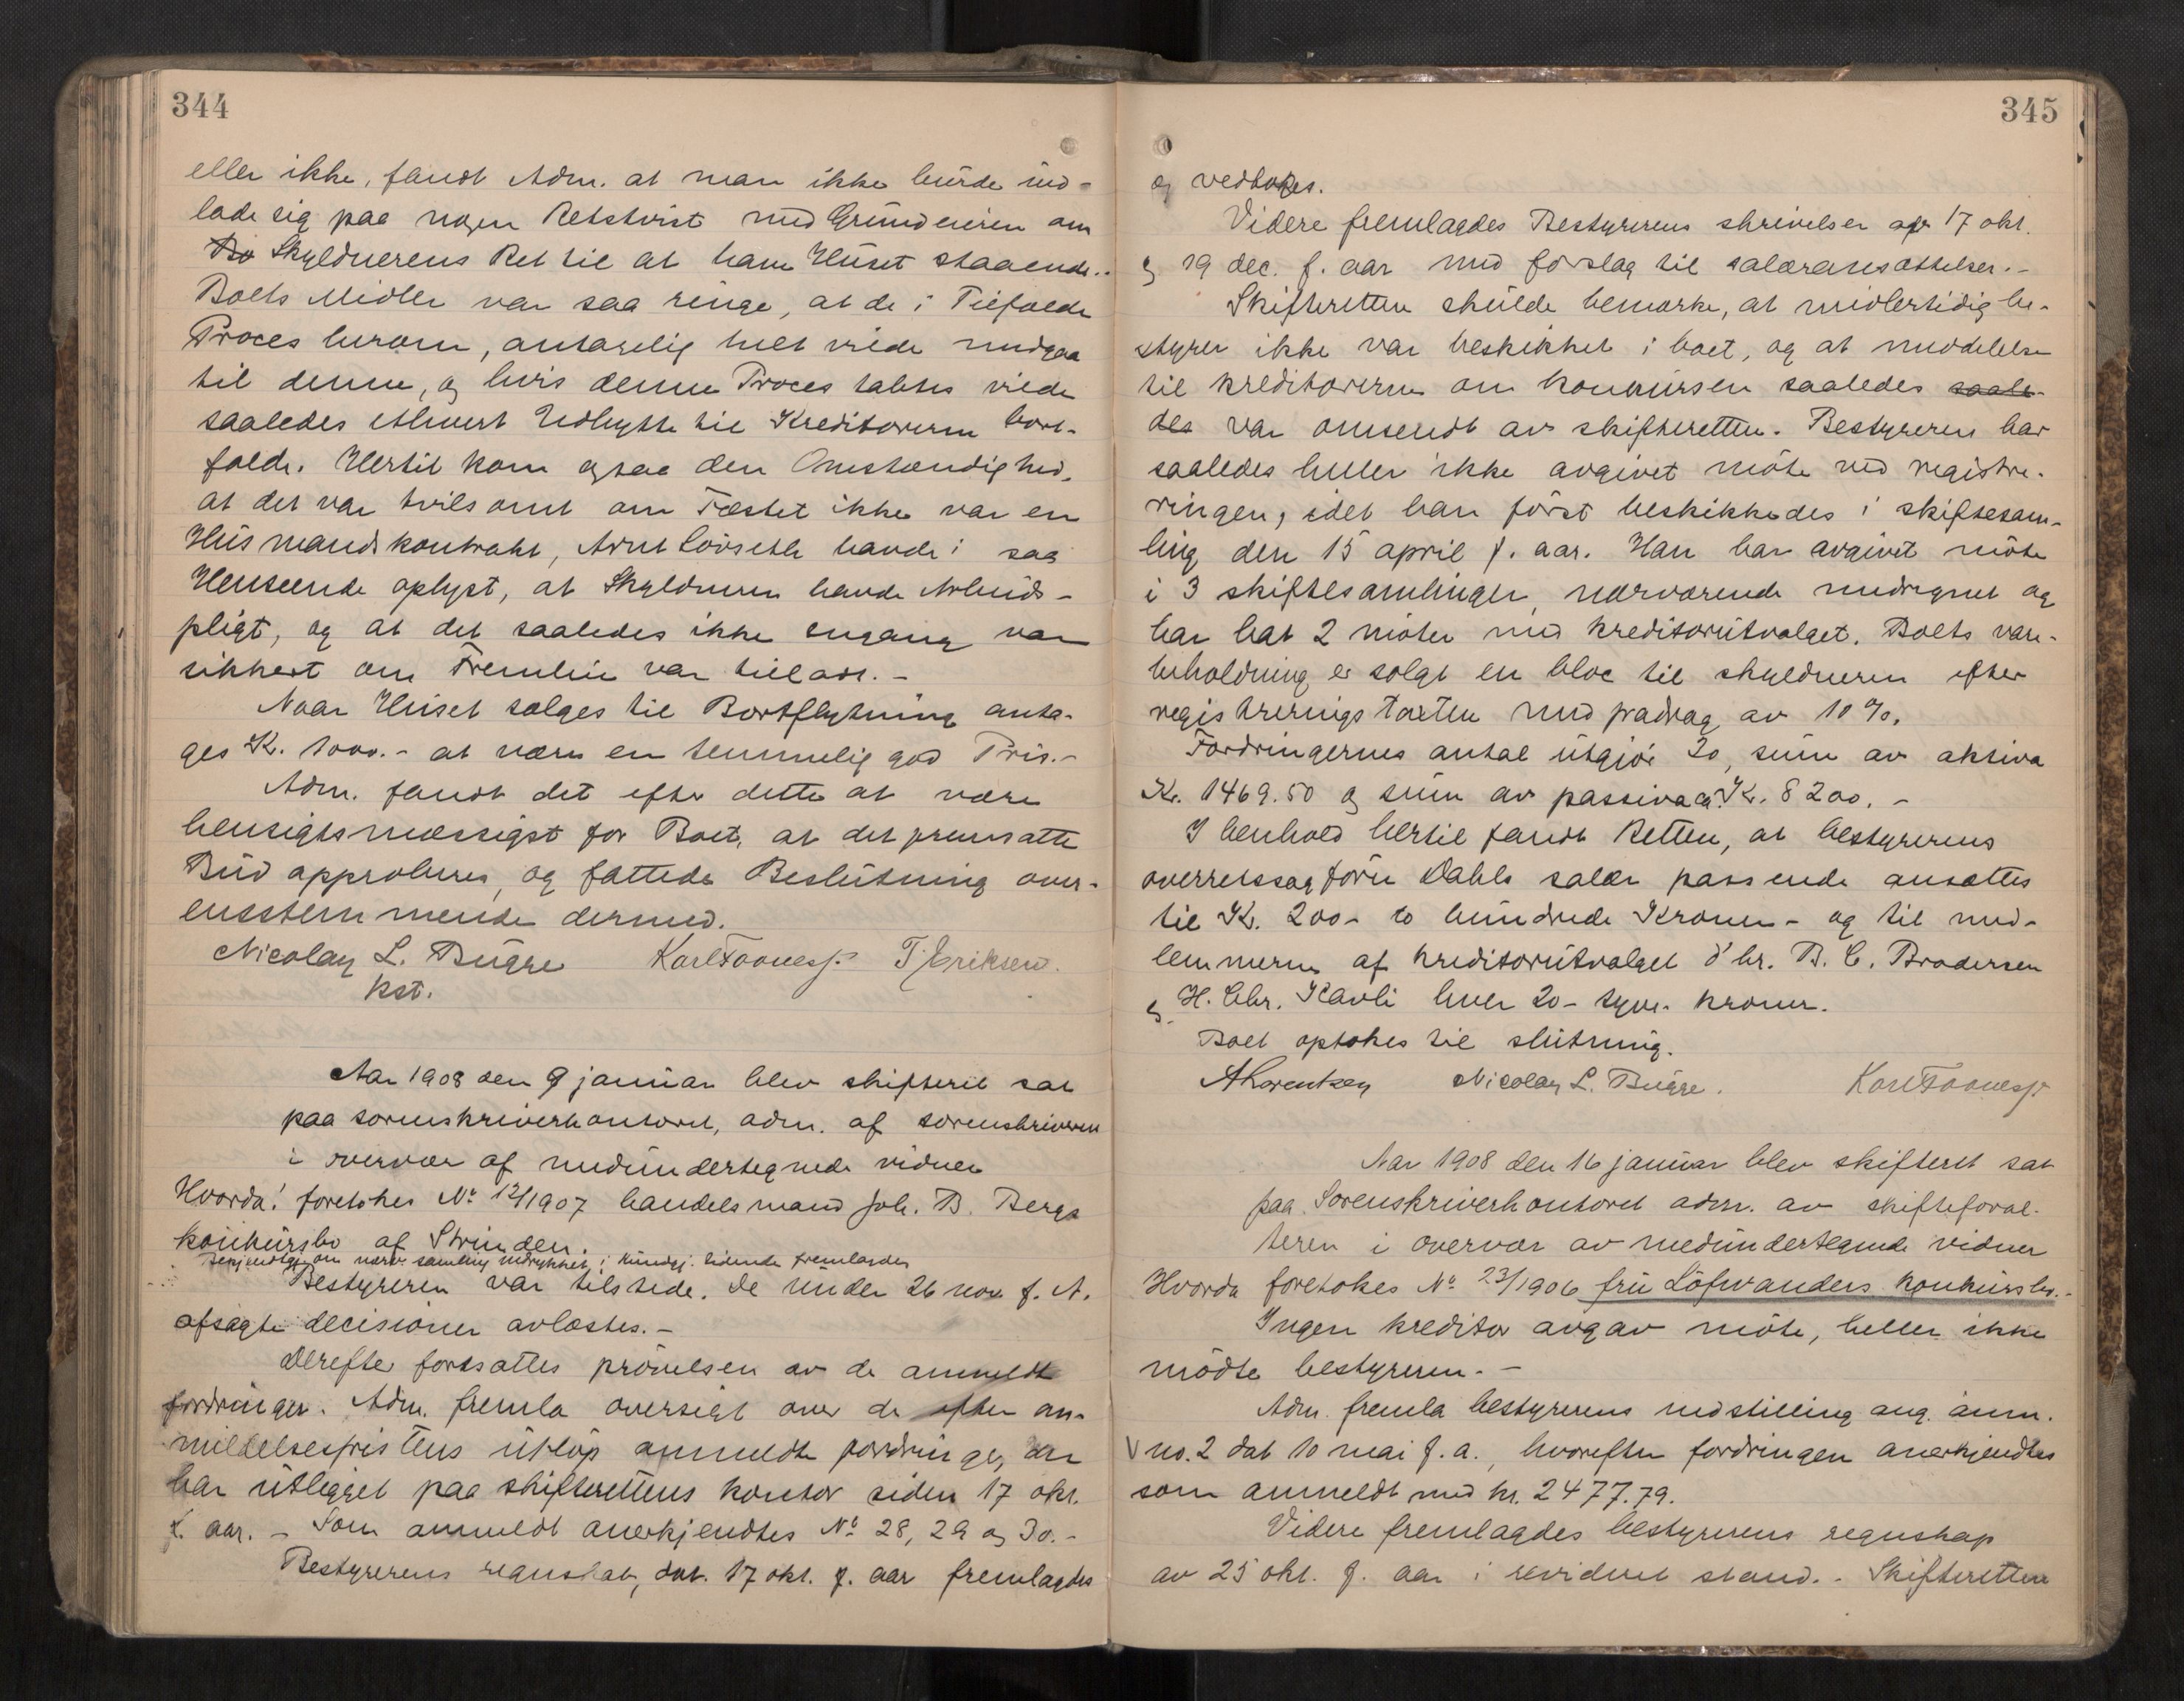 344
eller ikke, fandt Adm. at man ikke burde ind-
lade sig paa nogen Retstvist med Grundeieren om
Bo Skyldnerens Ret til at have Huset staaende.
Boets Midler var saa ringe, at de i Tilfælde
Proces herom, antagelig helt vilde medgaa
til denne, og hvis denne Proces tabtes vilde
saaledes ethvert Udbytte til Kreditorerne bort-
falde. Hertil kom ogsaa den Omstændighed,
at det var tvilsomt om Fæstet ikke var en
Husmandskontrakt, Arnt Løvseth havde i saa
Henseende oplyst, at Skyldneren havde Arbeids-
pligt, og at det saaledes ikke engang var
sikkert om Fremleie var tilladt. -
Naar Huset sælges til Bortflytning anta-
ges Kr. 1000.- at være en temmelig god Pris.-
Adm. fandt det efter dette at være
hensigtsmæssigst for Boet, at det fremsatte
Bud approberes, og fattede Beslutning over-
ensstemmende dermed.
Nicolay L. Bugge Karl Foones T. Eriksen.
kst.
Aar 1908 den 9 januar blev skifteret sat
paa sorenskriverkontoret, adm. af sorenskriveren
i overvær af medundertegnede vidner
Hvorda! foretokes No 12/1907 handelsmand Joh. B. Bergs
konkursbo af Strinden.
Bekjendtgj. om nærv. samling indrykket i Kundgj. tidende fremlagdes
Bestyreren var tilstede. De under 26 nov f. A.
afsagte decisioner avlæstes.-
Derefter fortsattes prøvelsen av de anmeldte
fordringer. Adm. fremla oversigt over de efter an-
meldelsesfristens utløp anmeldte fordringer, der
har utligget paa skifterettens kontor siden 17 okt.
f. aar. - Som anmeldt anerkjendtes No 28, 29 og 30.-
Bestyrerens regnskab, dat. 17 okt. f. aar fremlagdes
345
og vedtokes.
Videre fremlagdes Bestyrerens skrivelser af 17 okt.
og 19 dec. f. aar med forslag til salæransættelser.-
Skifteretten skulde bemærke, at midlertidig be-
styrer ikke var beskikket i boet, og at meddelelse
til kreditorerne om konkursen saaledes saale-
des var omsendt av skifteretten. Bestyreren har
saaledes heller ikke avgivet møte ved registre-
ringen, idet han først beskikkedes i skiftesam-
ling den 15 april f. aar. Han har avgivet møte
i 3 skiftesamlinger, nærværende medregnet og
har hat 2 møter med kreditorutvalget. Boets vare-
beholdning er solgt en bloc til skyldneren efter
registreringstaxten med fradrag av 10 %.
Fordringernes antal utgjør 30, sum av aktiva
Kr. 1469.50 og sum av passiva ca Kr. 8200.-
I henhold hertil fandt Retten, at bestyrerens
overretssagfører Dahls salær passende ansættes
til Kr. 200- to hundrede Kroner - og til med-
lemmerne af kreditorutvalget d'hr. B. C. Brodersen
og H. Chr. Kavli hver 20- tyve- kroner.
Boet optokes til slutning.
A Lorentzen Nicolay L. Bugge. Karl Foones
Aar 1908 den 16 januar blev skifteret sat
paa Sorenskriverkontoret adm. av skifteforval-
teren i overvær av medundertegnede vidner
Hvorda foretokes No 23/1906 fru Löfwanders konkursbo.-
Ingen kreditor avgav møte, heller ikke
mødte bestyreren.-
Adm. fremla bestyrerens indstilling ang. anm.
V no. 2 dat 10 mai f. a., hvorefter fordringen anerkjendtes
som anmeldt med kr. 2477.79.
Videre fremlagdes bestyrerens regnskap
av 25 okt. f. aar i revideret stand.- Skifteretten